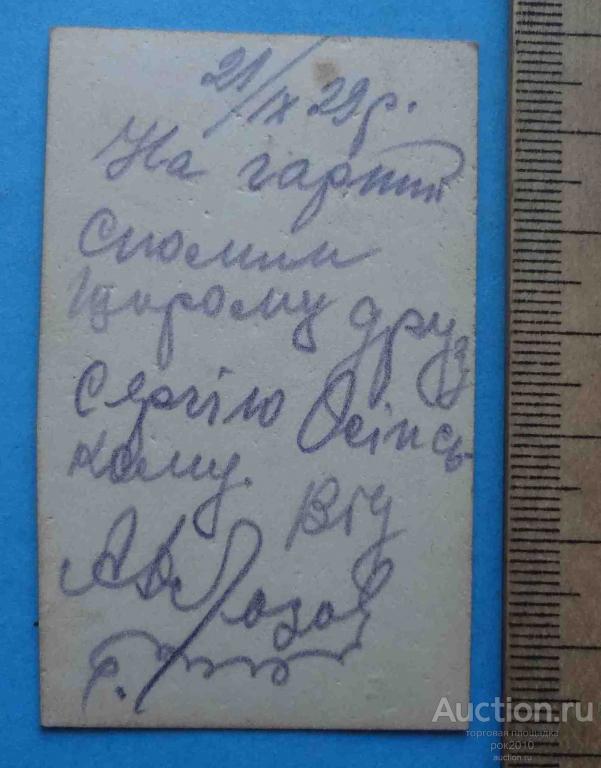 21/IX 29 р.
На гарний
спомин
Щирому друз
Сергію Осінсь
кому. Від
Auction.ru
торговая площадка
рок2010
auction.ru